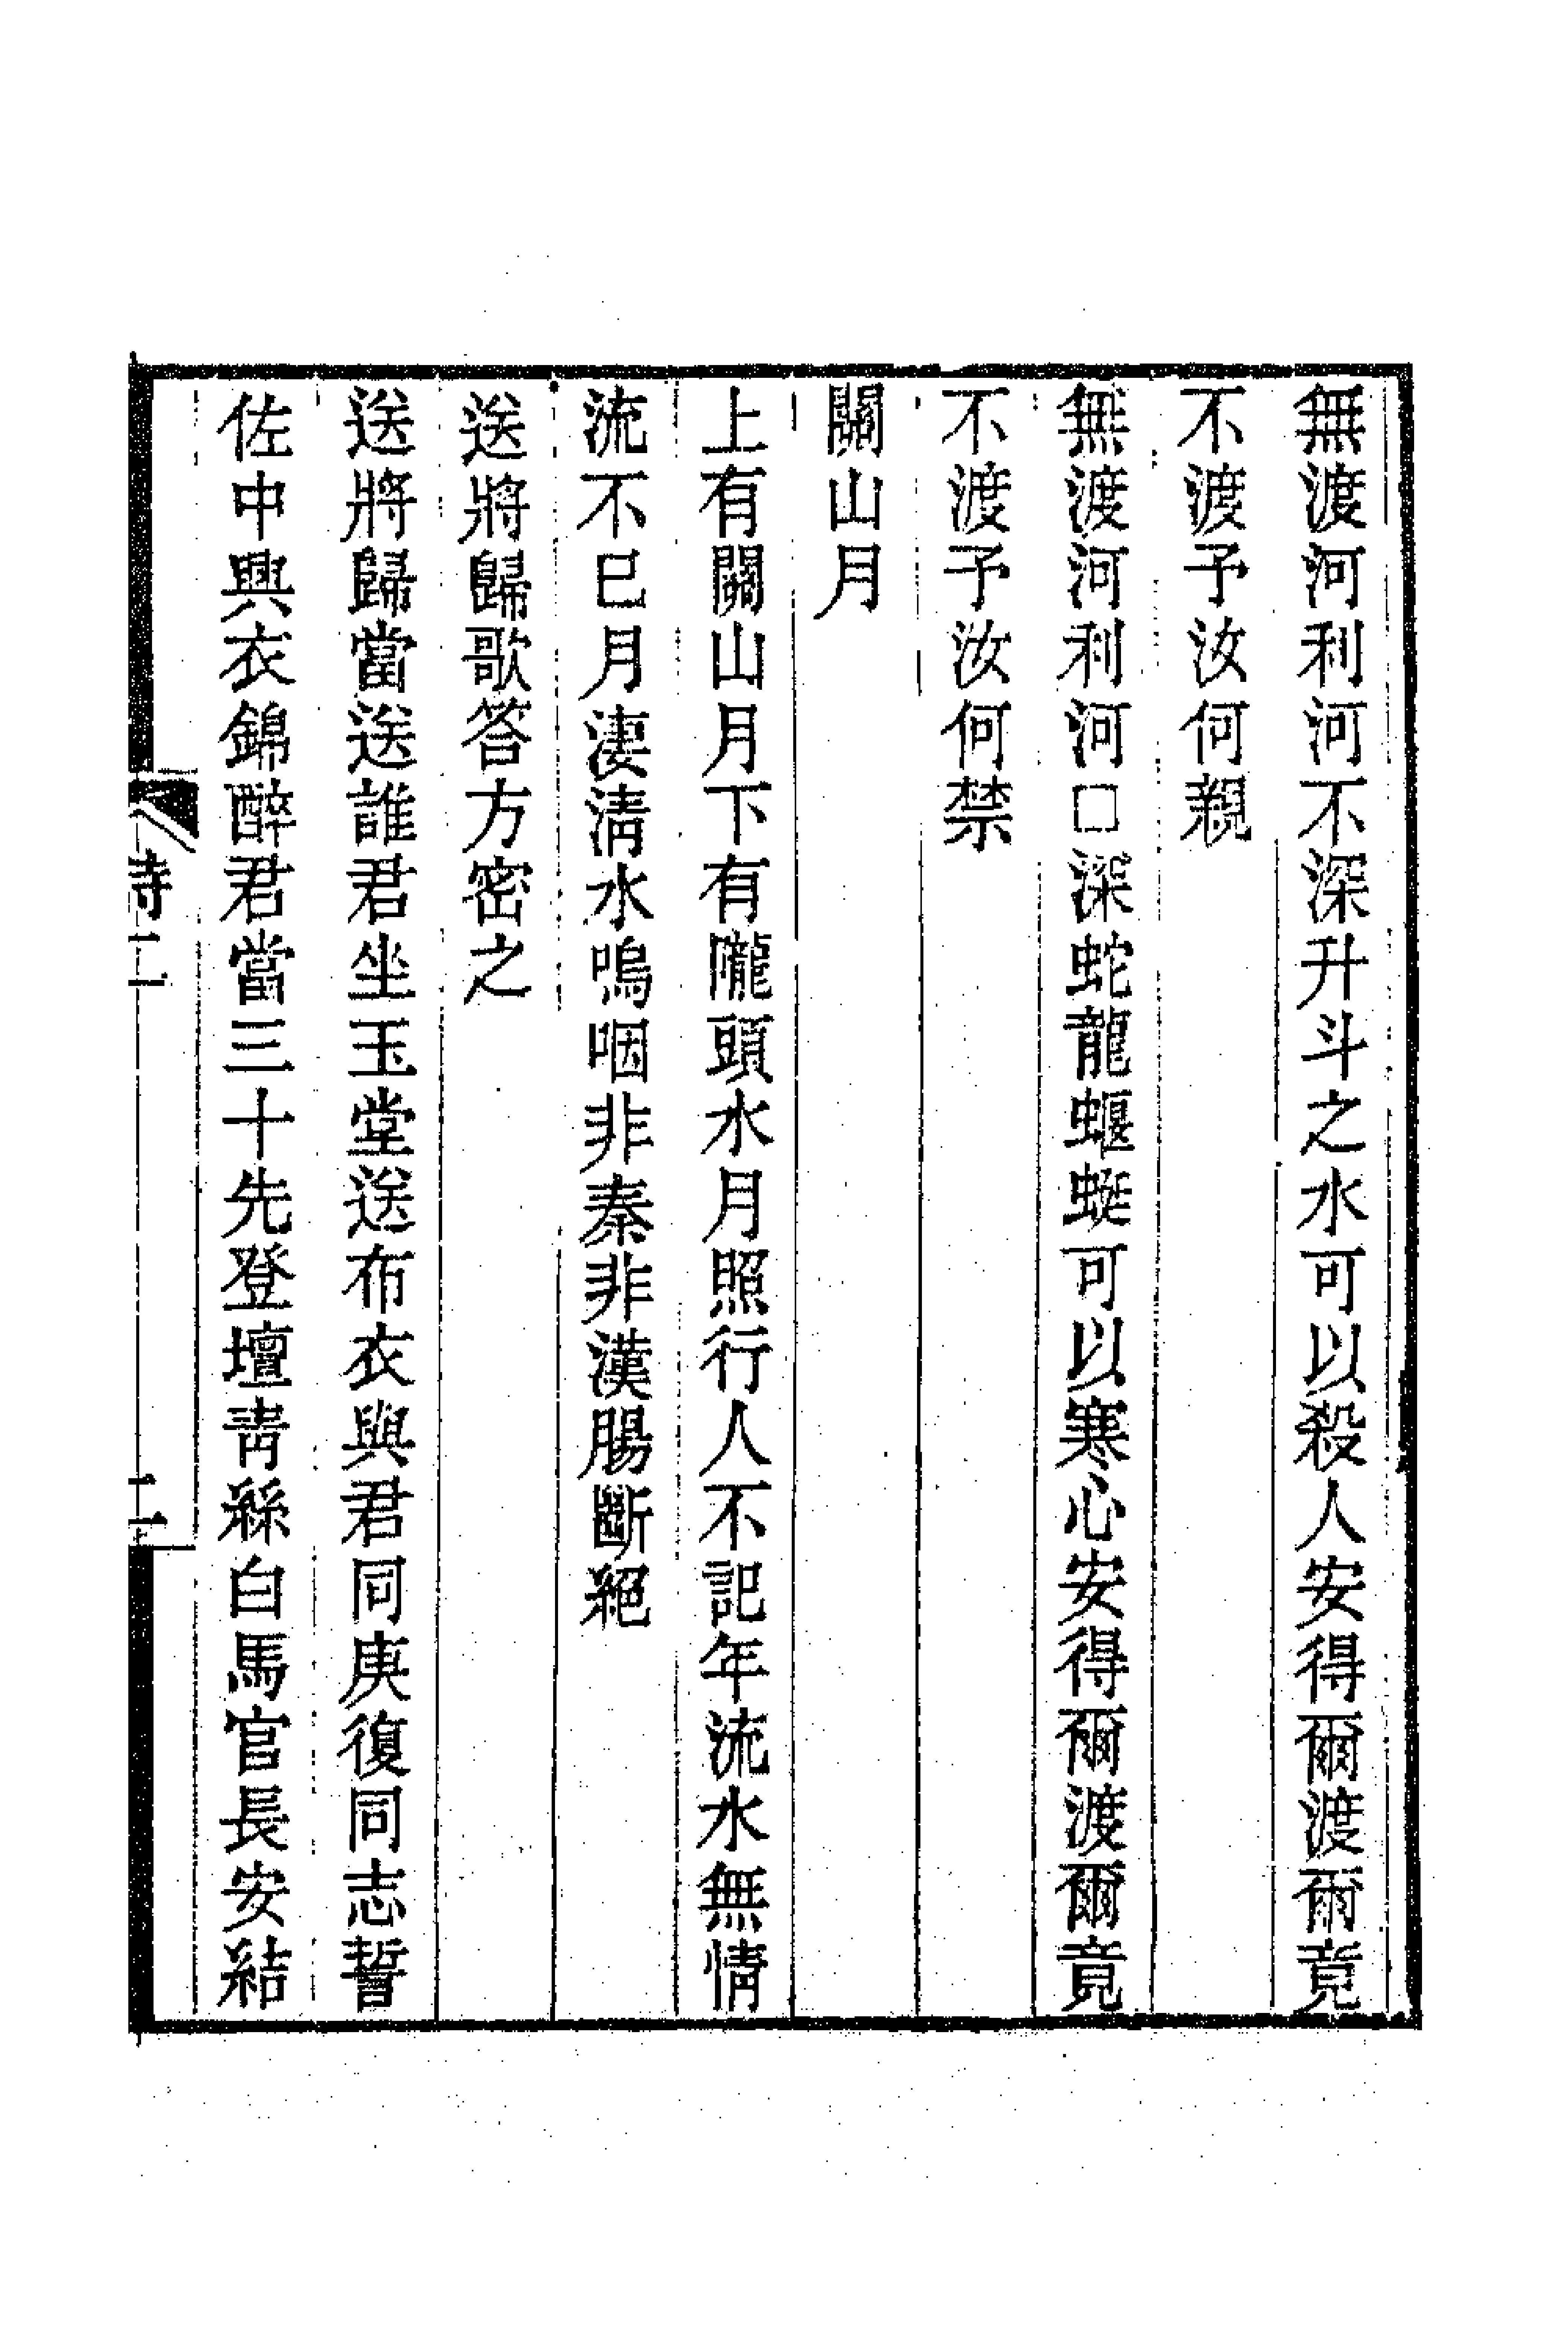 無渡河利河不深升斗之水可以殺人安得爾渡爾竟
不渡予汝何親
無渡河利河□深蛇龍蝘蜓可以寒心安得爾渡爾竟
不渡予汝何禁
關山月
上有關山月下有隴頭水月照行人不記年流水無情
流不已月淒清水嗚咽非秦非漢腸斷絕
送將歸歌答方密之
送將歸當送誰君坐玉堂送布衣與君同庚復同志誓
佐中興衣錦醉君當三十先登壇青絲白馬官長安結
詩二
二